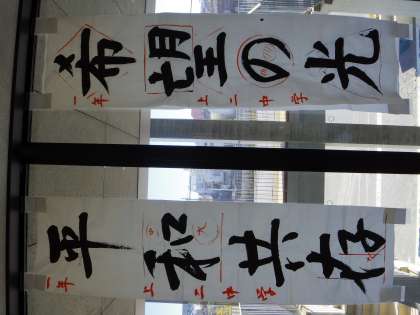 希望の光
一年 上二中学
平和共存
一年 上二中学